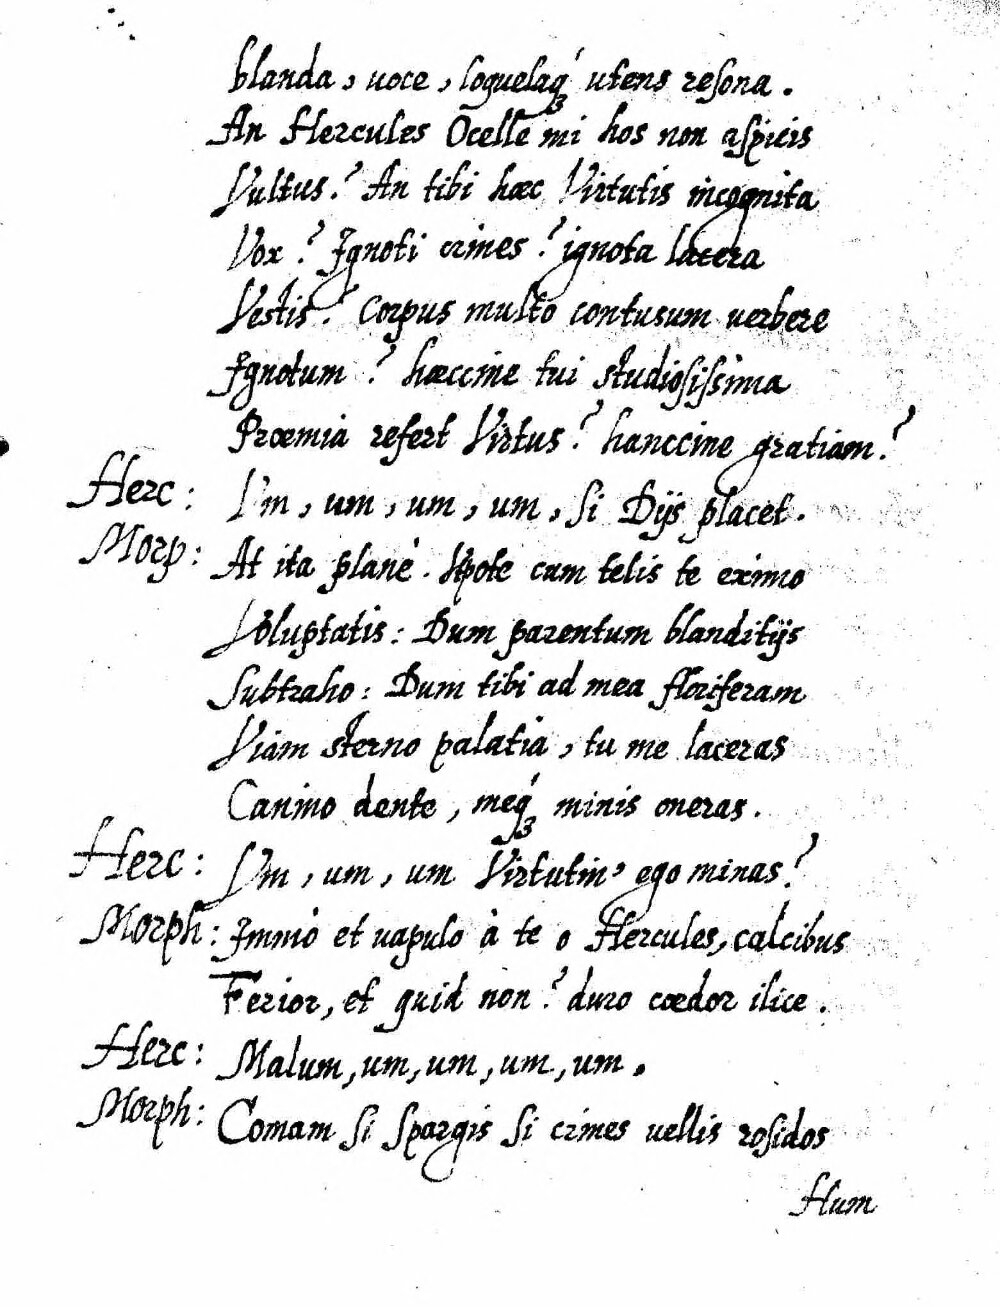 blanda, uoce, loquelaq́ꝫ utens resona.
An Hercules Ocelle mi hos non aspicis
Vultus? An tibi hæc Virtutis incognita
Vox? Ignoti crines? ignota lacera
Vestis? Corpus multo contusum uerbere
Ignotum? hæccine tui studiosissima
Præmia refert Virtus? hanccine gratiam?
Herc: Vm, um, um, um, si Dijs placet.
Morp: At ita planè. Vtpote cum telis te eximo
Voluptatis: Dum parentum blanditijs
Subtraho: Dum tibi ad mea floriferam
Viam sterno palatia, tu me laceras
Canino dente, meq́ꝫ minis oneras.
Herc: Vm, um, um Virtutin' ego minas?
Morph: Immò et uapulo à te o Hercules, calcibus
Ferior, et quid non? duro cædor ilice.
Herc: Malum, um, um, um, um.
Morph: Comam si spargis si crines uellis rosidos
Hum